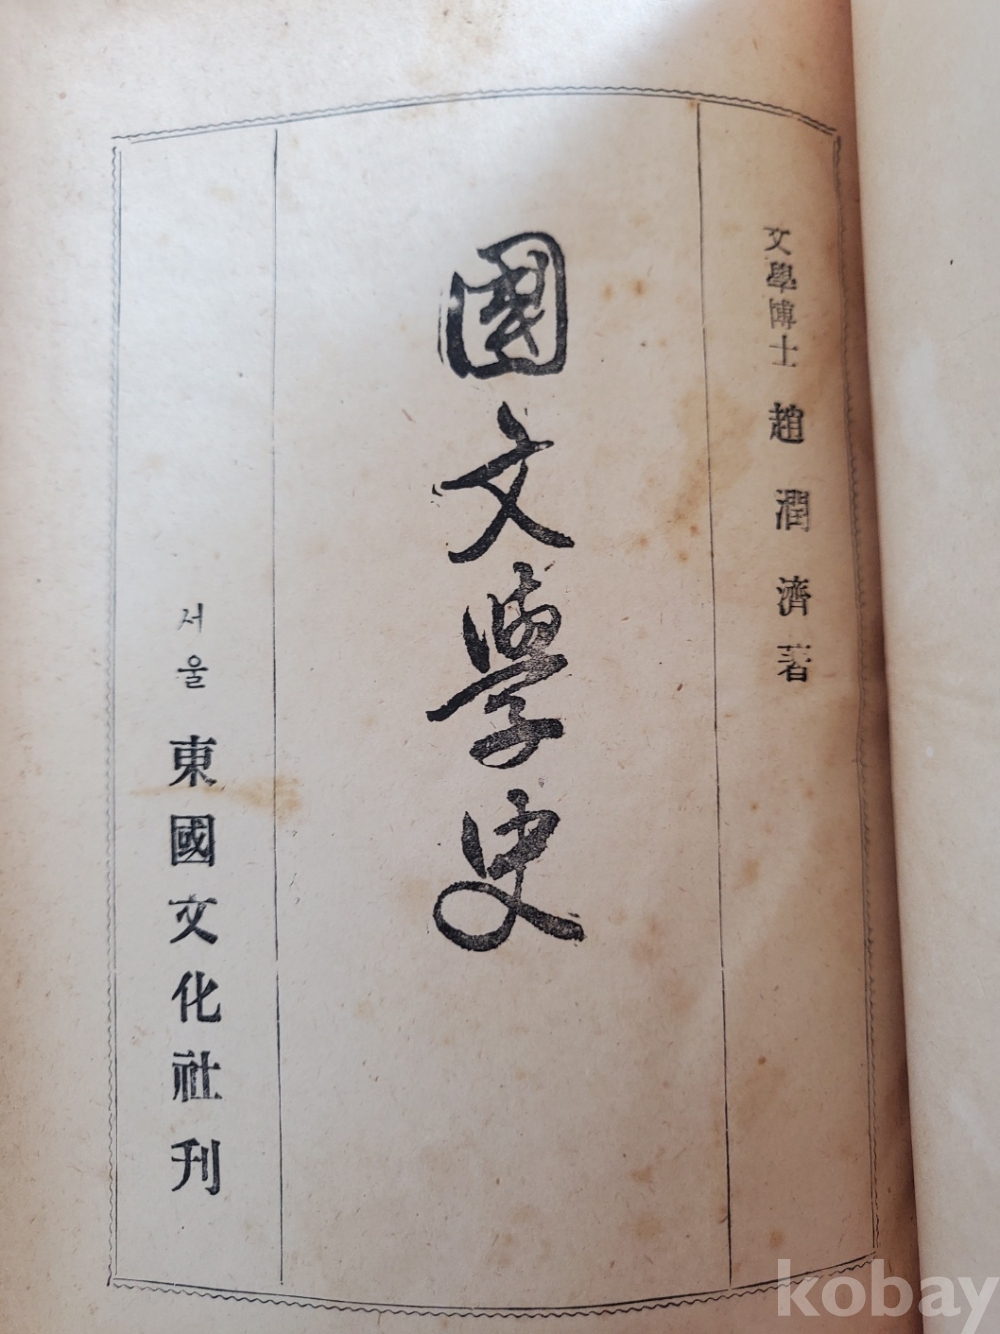 文學博士 趙潤濟著
國文學史
서울 東國文化社刊
kobay